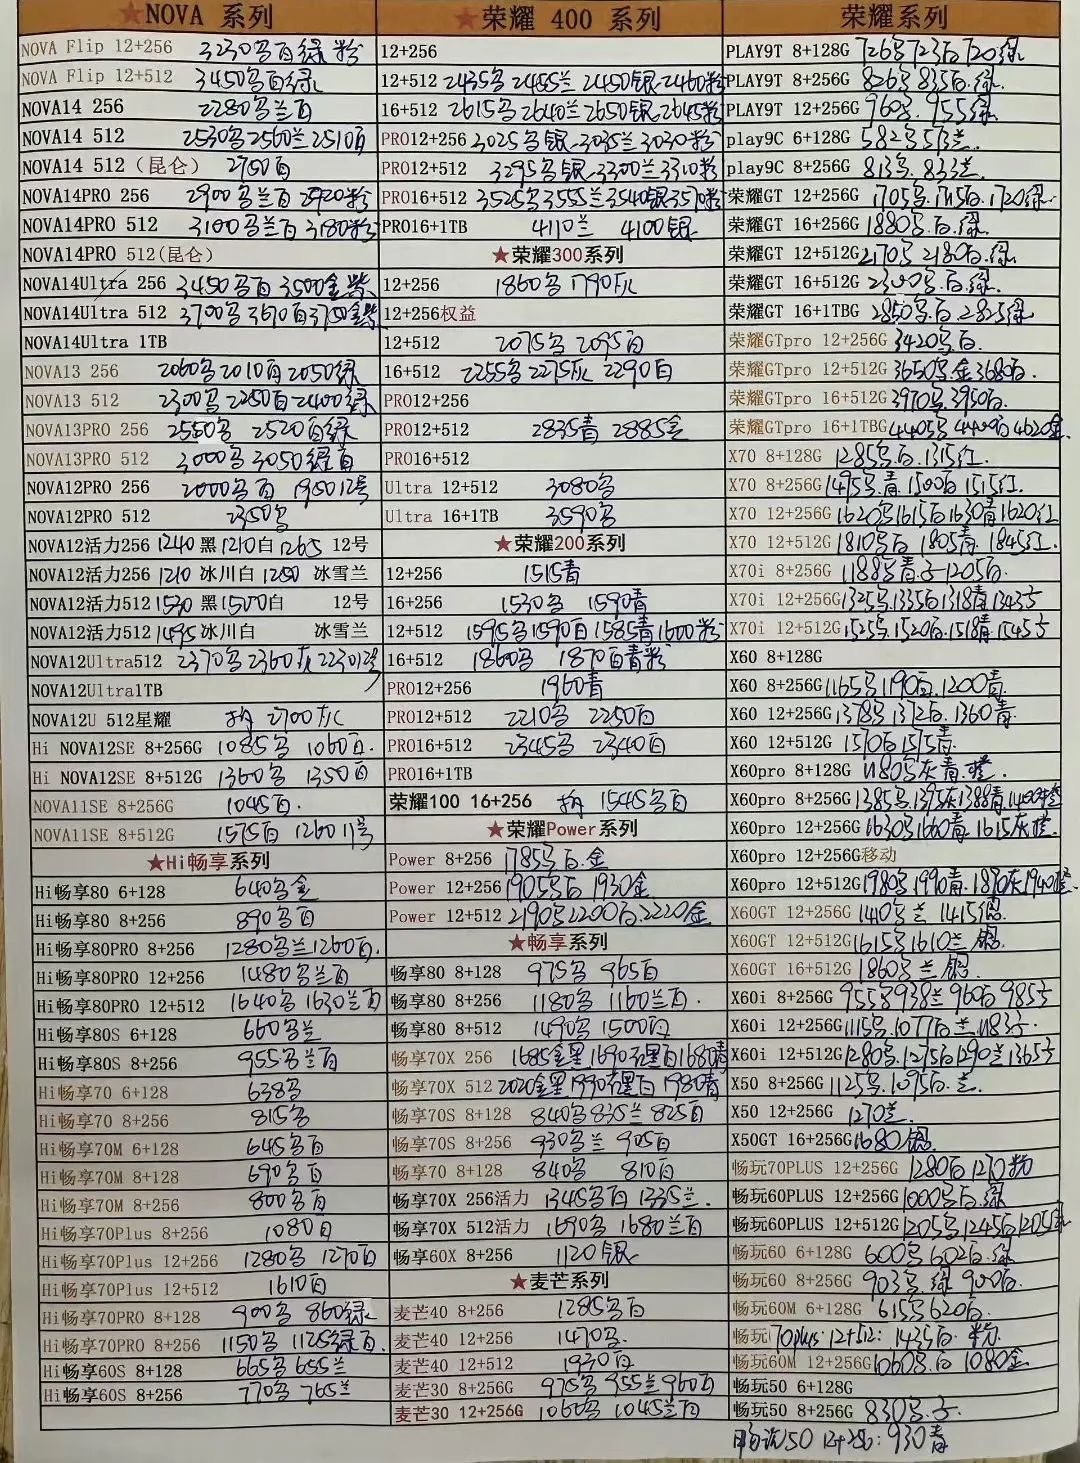 ★NOVA 系列
NOVA Flip 12+256 3230白绿 粉
NOVA Flip 12+512 3450白绿
NOVA14 256 2280兰白
NOVA14 512 2530 2560兰2510白
NOVA14 512(昆仑) 2750白
NOVA14PRO 256 2900兰白 2920粉
NOVA14PRO 512 3100兰白 3180粉
NOVA14PRO 512(昆仑)
NOVA14Ultra 256 3450白 3500金紫
NOVA14Ultra 512 3700 3670白3750金紫
NOVA14Ultra 1TB
NOVA13 256 2060 2010白2050绿
NOVA13 512 2300 2250白2400绿
NOVA13PRO 256 2550 2520白绿
NOVA13PRO 512 3000 3050绿白
NOVA12PRO 256 2000白 1950 12号
NOVA12PRO 512 2350
NOVA12活力256 1240 黑1210白1265 12号
NOVA12活力256 1210 冰川白1250 冰雪兰
NOVA12活力512 1530 黑1500白 12号
NOVA12活力512 1495 冰川白 冰雪兰
NOVA12Ultra512 2370 2360灰 2230 12号
NOVA12Ultra1TB
NOVA12U 512星耀 2700灰
Hi NOVA12SE 8+256G 1085 1060白.
Hi NOVA12SE 8+512G 1360 1350白
NOVA11SE 8+256G 1045白.
NOVA11SE 8+512G 1575白 1260 11号
★Hi畅享系列
Hi畅享80 6+128 640金
Hi畅享80 8+256 890白
Hi畅享80PRO 8+256 1280兰1260白.
Hi畅享80PRO 12+256 1480兰白
Hi畅享80PRO 12+512 1640 1630兰白
Hi畅享80S 6+128 660兰
Hi畅享80S 8+256 955兰白
Hi畅享70 6+128 638
Hi畅享70 8+256 815
Hi畅享70M 6+128 645白
Hi畅享70M 8+128 690白
Hi畅享70M 8+256 800白
Hi畅享70Plus 8+256 1080白
Hi畅享70Plus 12+256 1280 1270白
Hi畅享70Plus 12+512 1610白
Hi畅享70PRO 8+128 900 860绿
Hi畅享70PRO 8+256 1150 1125绿白.
Hi畅享60S 8+128 665 655兰
Hi畅享60S 8+256 770 765兰
★荣耀 400 系列
12+256
12+512 2435 2455兰 2450银 2460粉
16+512 2615 2640兰2650银2645粉
PRO12+256 3025银 3035兰3030粉
PRO12+512 3295银 3300兰3310粉
PRO16+512 3525 3555兰3540银3570粉
PRO16+1TB 4110兰 4100银
★荣耀300系列
12+256 1860 1790灰
12+256权益
12+512 2075 2095白
16+512 2255 2275灰 2290白
PRO12+256
PRO12+512 2835青 2885金
PRO16+512
Ultra 12+512 3080
Ultra 16+1TB 3590
★荣耀200系列
12+256 1515青
16+256 1530 1590青
12+512 1595 1590白1585青1600粉
16+512 1860 1870白青粉
PRO12+256 1960青
PRO12+512 2210 2250白
PRO16+512 2345 2340白
PRO16+1TB
荣耀100 16+256 1545白
★荣耀Power系列
Power 8+256 1785白.金
Power 12+256 1905白 1930金
Power 12+512 2190 2200白.2220金
★畅享系列
畅享80 8+128 975 965白
畅享80 8+256 1180 1160兰白.
畅享80 8+512 1490 1500白
畅享70X 256 1685金黑1690 1680青
畅享70X 512 2020金黑1990 1980青
畅享70S 8+128 840 835兰 825白
畅享70S 8+256 930兰 905白
畅享70 8+128 840 810白
畅享70X 256活力 1345白 1335兰.
畅享70X 512活力 1690 1680兰白
畅享60X 8+256 1120银
★麦芒系列
麦芒40 8+256 1285白
麦芒40 12+256 1470
麦芒40 12+512 1930白
麦芒30 8+256G 975 955兰960白
麦芒30 12+256G 1060 1045兰白
荣耀系列
PLAY9T 8+128G 726 723白 720绿
PLAY9T 8+256G 826 835白.绿
PLAY9T 12+256G 960. 955绿
play9C 6+128G 582 573兰
play9C 8+256G 813. 833兰.
荣耀GT 12+256G 1705 1715白.1720绿
荣耀GT 16+256G 1880.白.绿
荣耀GT 12+512G 2170 2180白.绿
荣耀GT 16+512G 2300.白.绿
荣耀GT 16+1TBG 2850.白 2825绿
荣耀GTpro 12+256G 3420白.
荣耀GTpro 12+512G 3650金3680白.
荣耀GTpro 16+512G 3970.3950白.
荣耀GTpro 16+1TBG 4405 4440白4620金
X70 8+128G 1285白.1315红.
X70 8+256G 1495.青.1500白1515红.
X70 12+256G 1620 1615白1630青1620红
X70 12+512G 1810白 1805青.1845红.
X70i 8+256G 1188 青. 1205白.
X70i 12+256G 1325 1335白1318青1343
X70i 12+512G 1525.1520白.1518青1545
X60 8+128G
X60 8+256G 1165 1190白.1200青.
X60 12+256G 1378 1372白.1360青.
X60 12+512G 1570白1575青.
X60pro 8+128G 1180灰青.橙.
X60pro 8+256G 1385.1395灰1388青.1400橙
X60pro 12+256G 1630 1660青.1615灰橙.
X60pro 12+256G移动
X60pro 12+512G 1980 1990青.1890灰1940橙
X60GT 12+256G 1410兰 1415银.
X60GT 12+512G 1615 1610兰 银.
X60GT 16+512G 1860兰 银.
X60i 8+256G 955 938兰960白985
X60i 12+256G 1115.1077白 兰.1183
X60i 12+512G 1280.1275白1290兰1365
X50 8+256G 1125.1095白.兰.
X50 12+256G 1270兰.
X50GT 16+256G 1680银.
畅玩70PLUS 12+256G 1280白1270粉
畅玩60PLUS 12+256G 1000白.绿
畅玩60PLUS 12+512G 1205 1245白1205绿
畅玩60 6+128G 600 602白.绿
畅玩60 8+256G 903 绿 900白.
畅玩60M 6+128G 615 620白.
畅玩70plus: 12+512: 1435白. 粉
畅玩60M 12+256G 1060.白 1080金
畅玩50 6+128G
畅玩50 8+256G 830.
畅玩50 12+256: 930青